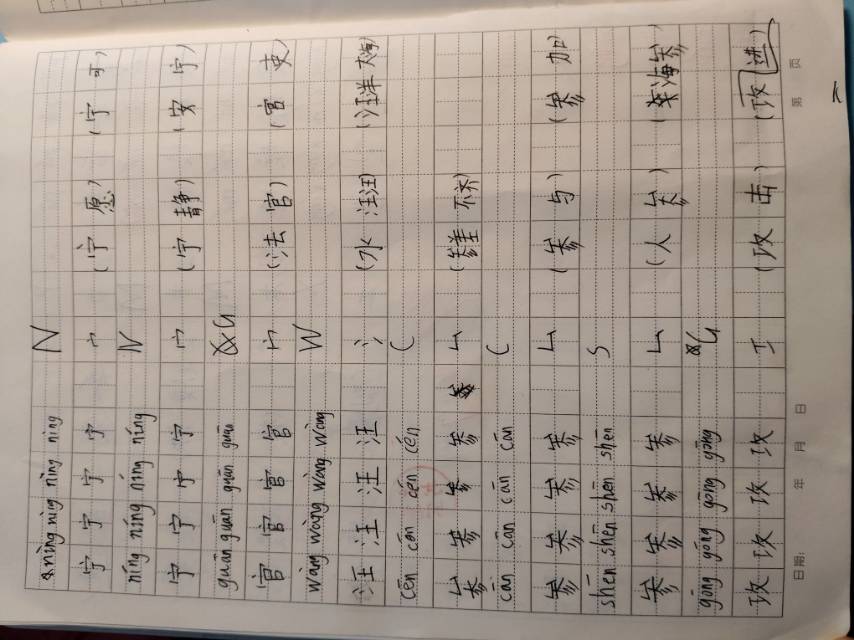 nìng nìng nìng nìng N
宁 宁 宁 宁 宀 (宁愿) (宁可)
níng níng níng níng N
宁 宁 宁 宁 宀 (宁静) (安宁)
guān guān guān guān G
官 官 官 官 宀 (法官) (官吏)
wāng wāng wāng wāng W
汪 汪 汪 汪 氵 (水汪汪) (汪洋大海)
cēn cēn cēn cēn C
参 参 参 参 厶 (参差不齐)
cān cān cān cān C
参 参 参 参 厶 (参与) (参加)
shēn shēn shēn shēn S
参 参 参 参 厶 (人参) (海参)
gōng gōng gōng gōng G
攻 攻 攻 攻 工 (攻击) (攻进)
日期: 年 月 日 第 页